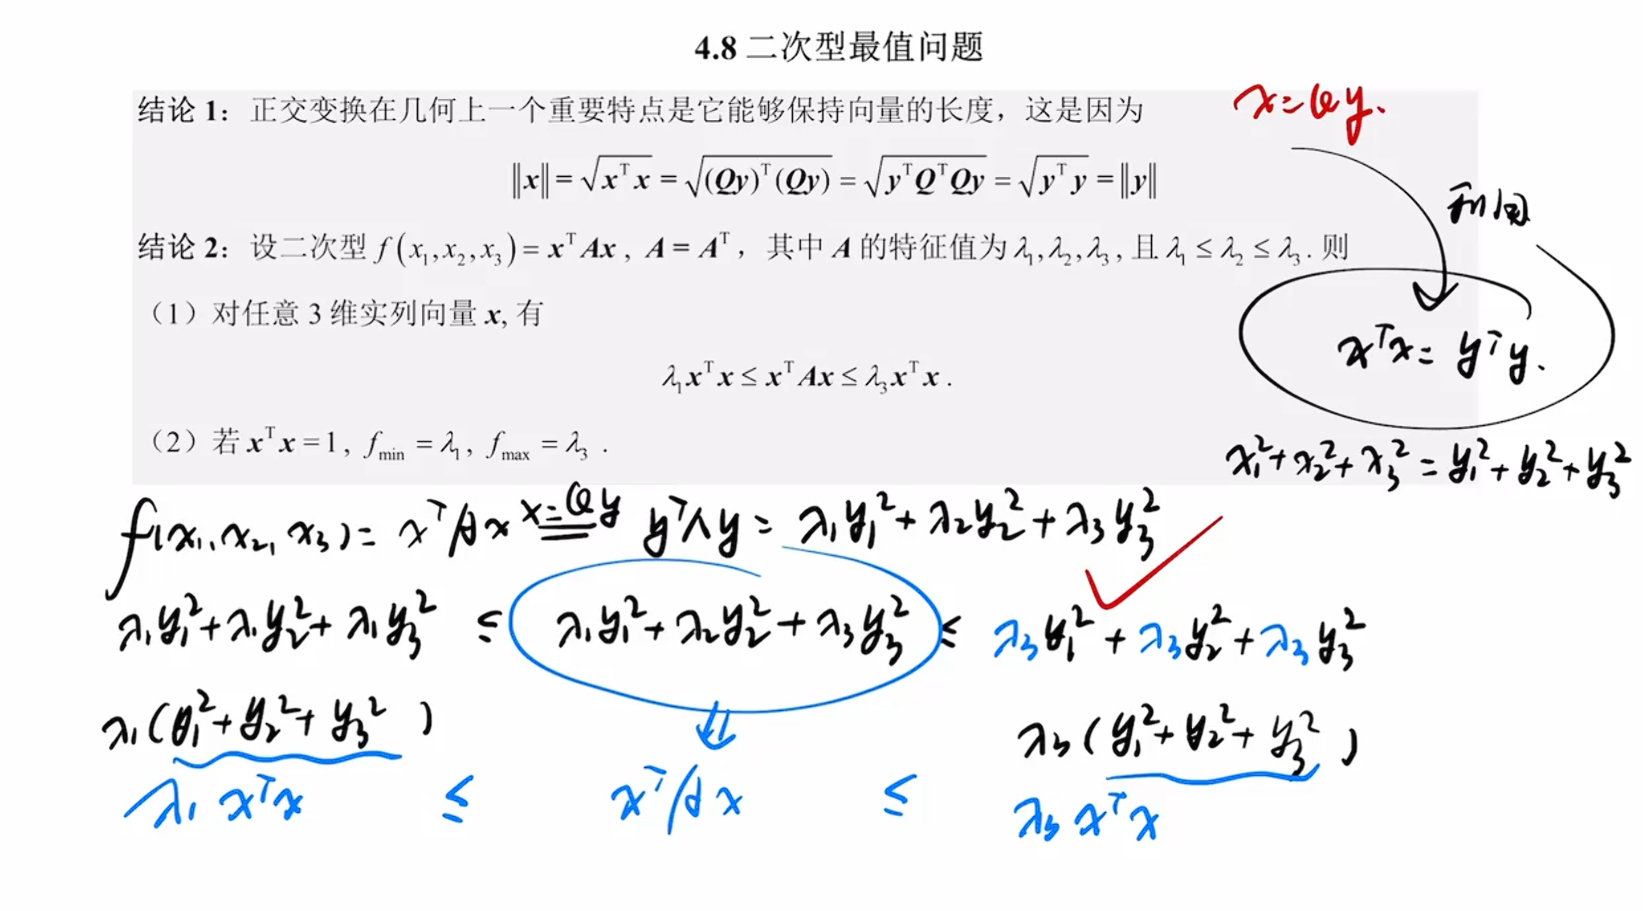 4.8 二次型最值问题
结论 1：正交变换在几何上一个重要特点是它能够保持向量的长度，这是因为
x=Qy.
‖x‖=√(xᵀx)=√((Qy)ᵀ(Qy))=√(yᵀQᵀQy)=√(yᵀy)=‖y‖
利用
结论 2：设二次型 f(x₁,x₂,x₃)=xᵀAx, A=Aᵀ，其中 A 的特征值为 λ₁,λ₂,λ₃, 且 λ₁≤λ₂≤λ₃. 则
（1）对任意 3 维实列向量 x, 有
xᵀx=yᵀy.
λ₁xᵀx≤xᵀAx≤λ₃xᵀx.
（2）若 xᵀx=1, f_min=λ₁, f_max=λ₃.
x₁²+x₂²+x₃²=y₁²+y₂²+y₃²
f(x₁,x₂,x₃)=xᵀAx x=Qy yᵀΛy=λ₁y₁²+λ₂y₂²+λ₃y₃²
λ₁y₁²+λ₁y₂²+λ₁y₃² ≤ λ₁y₁²+λ₂y₂²+λ₃y₃² ≤ λ₃y₁²+λ₃y₂²+λ₃y₃²
λ₁(y₁²+y₂²+y₃²) λ₃(y₁²+y₂²+y₃²)
λ₁xᵀx ≤ xᵀAx ≤ λ₃xᵀx